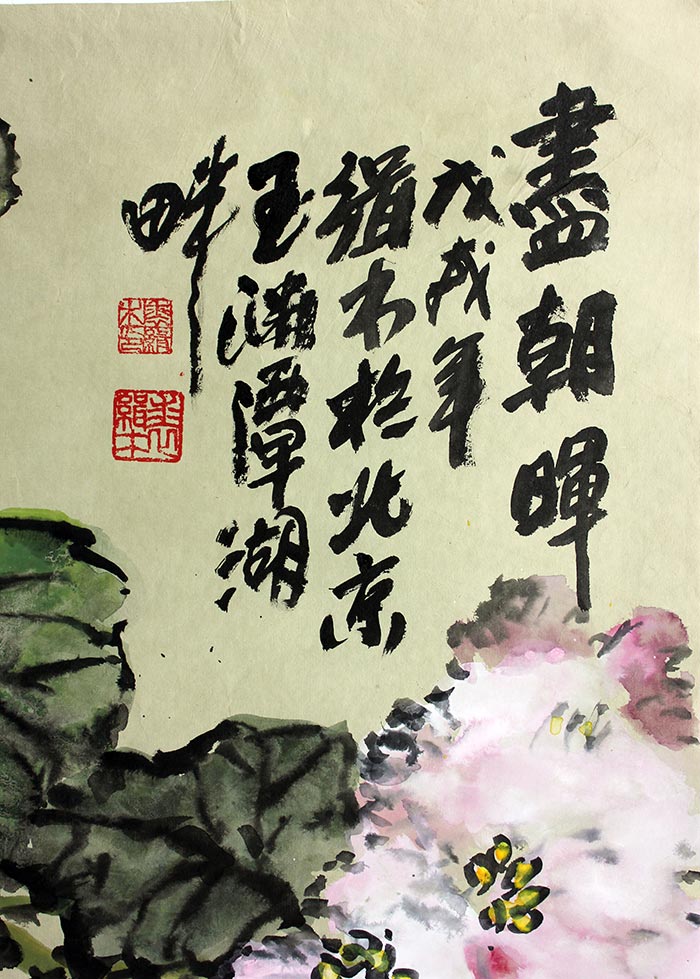 盡朝暉
戊戌年
緝木於北京
玉淵潭湖
畔